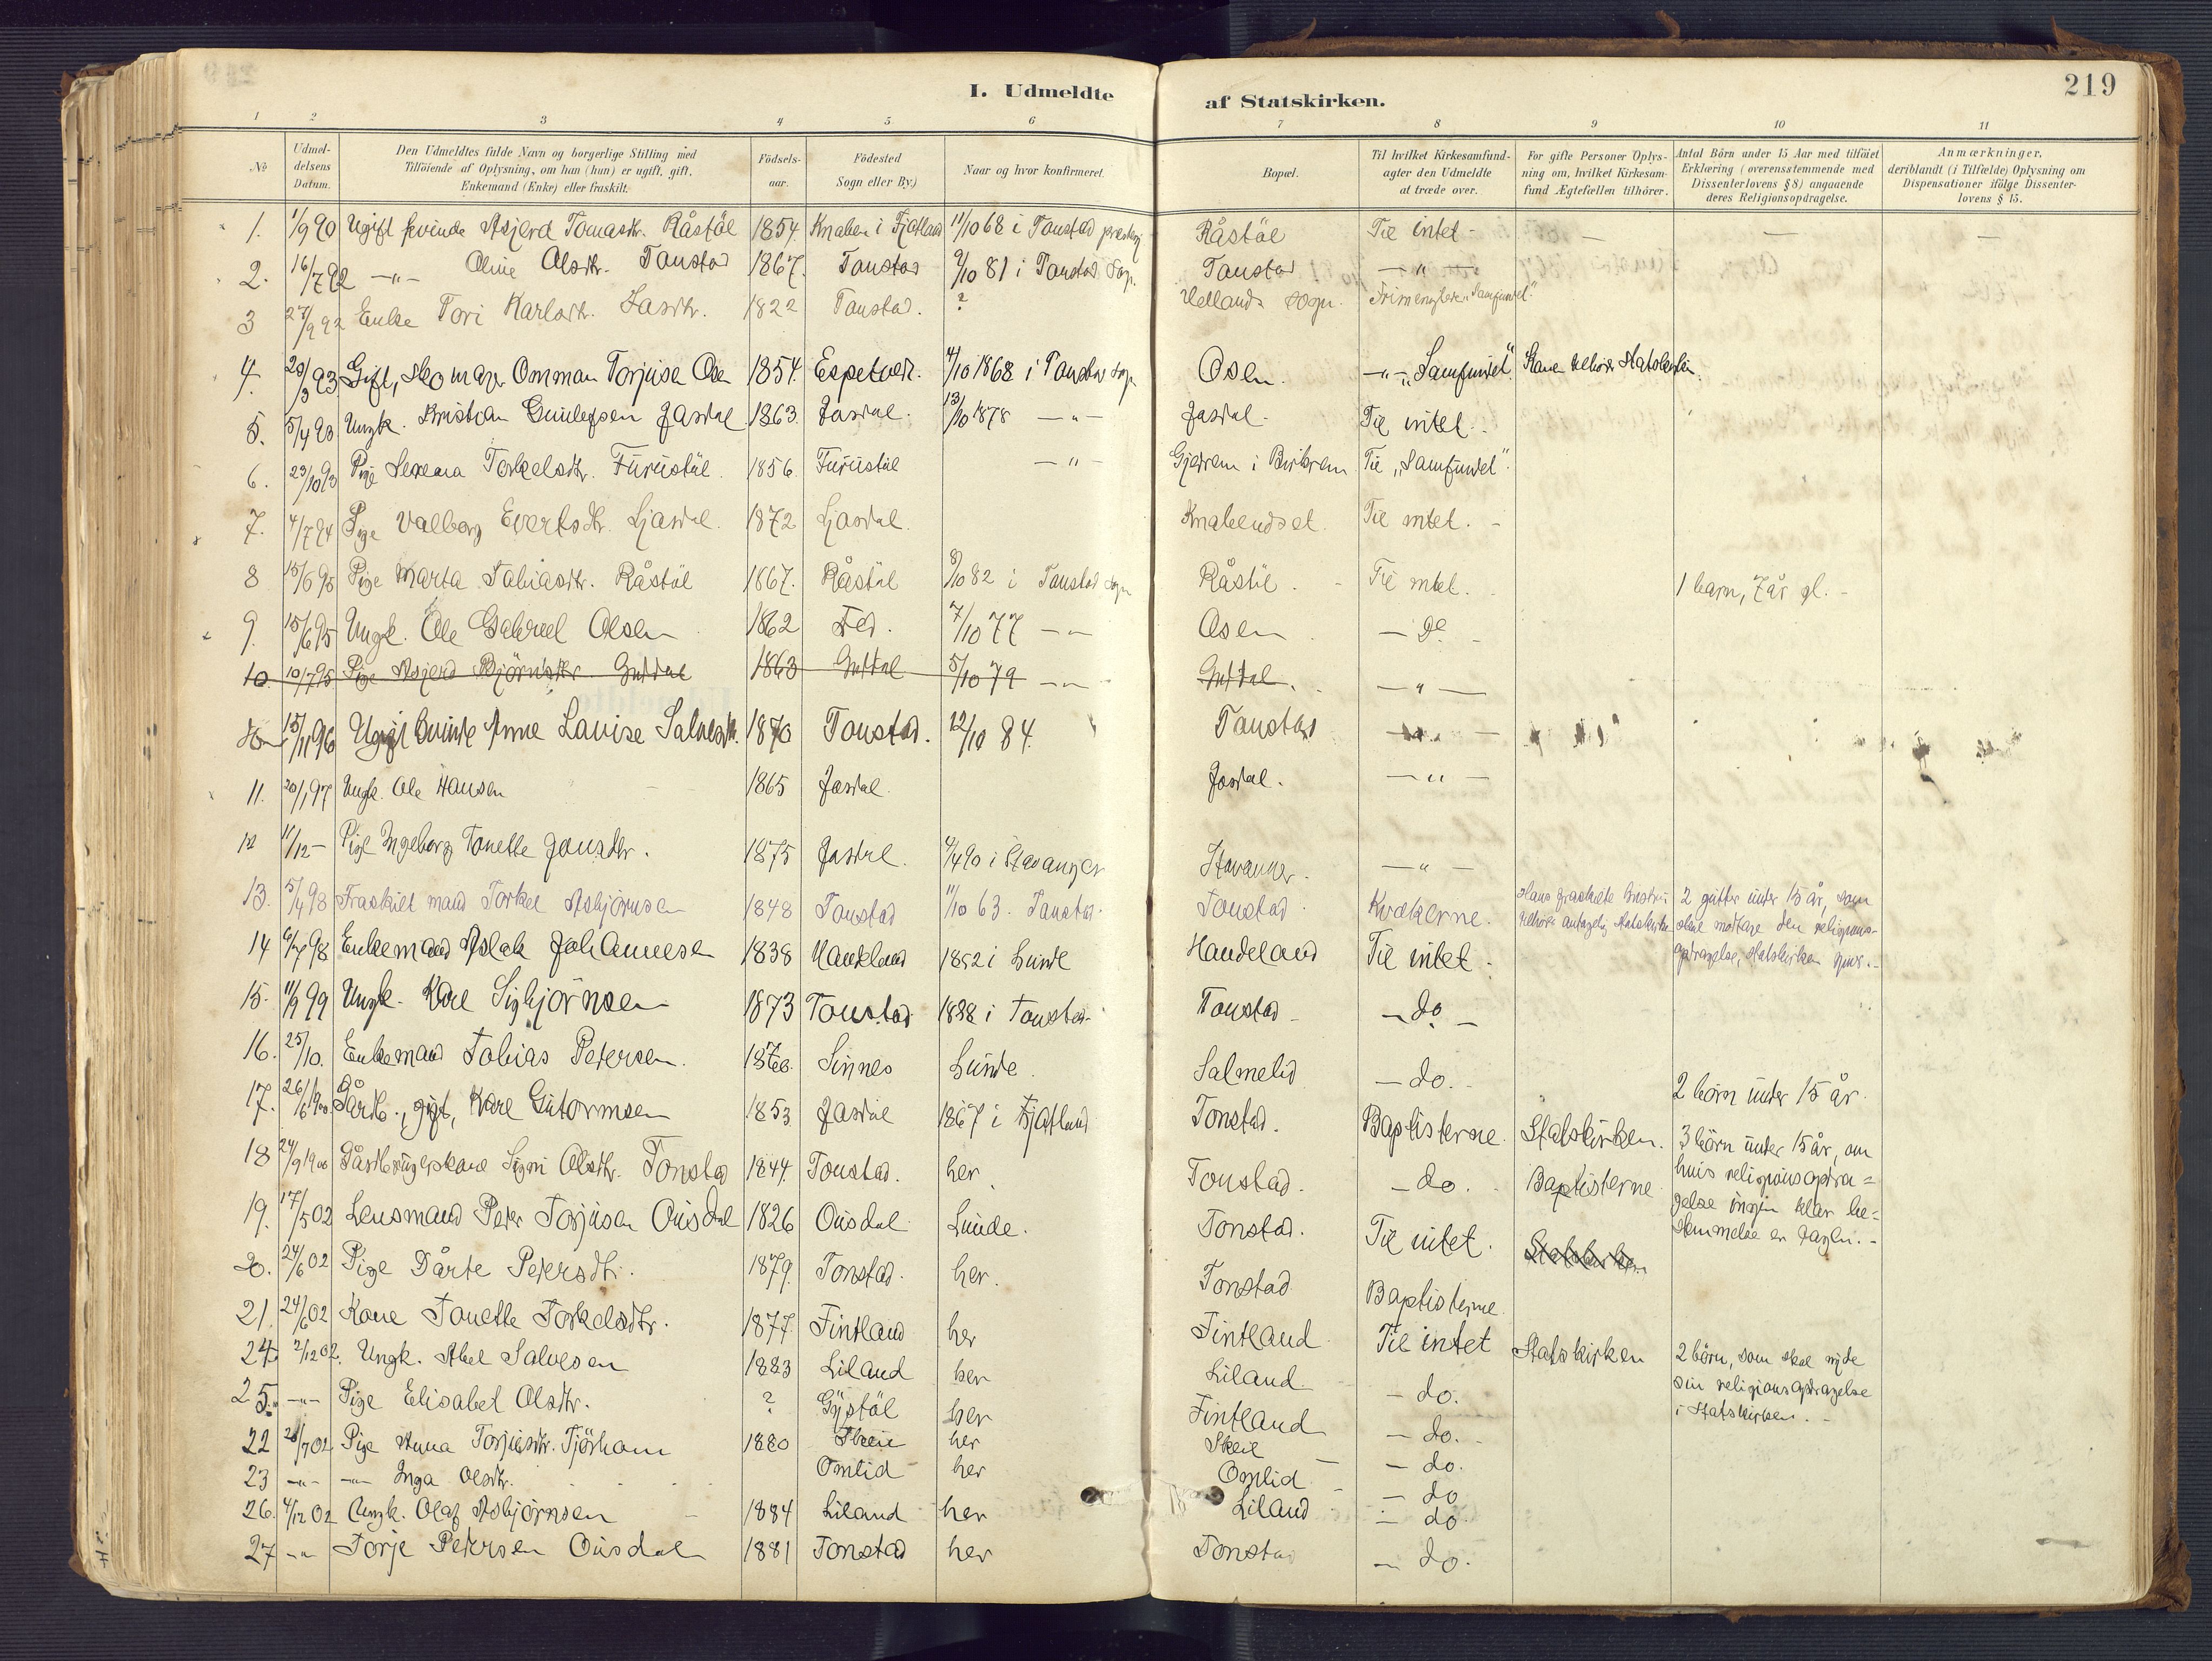 I. Udmeldte af Statskirken.
219
1 2 3 4 5 6 7 8 9 10 11
№
Udmeldelsens Datum.
Den Udmeldtes fulde Navn og borgerlige Stilling med
Tilföiende af Oplysning, om han (hun) er ugift, gift,
Enkemand (Enke) eller fraskilt.
Födselsaar.
Födested
Sogn eller By.)
Naar og hvor konfirmeret.
Bopæl.
Til hvilket Kirkesamfund
agter den Udmeldte
at træde over.
For gifte Personer Oplysning om, hvilket Kirkesamfund Ægtefællen tilhörer.
Antal Börn under 15 Aar med tilföiet
Erklæring (overensstemmende med
Dissenterlovens § 8) angaaende
deres Religionsopdragelse.
Anmærkninger,
deriblandt (i Tilfælde) Oplysning om
Dispensationer ifölge Dissenterlovens § 15.
1. 1/9 90 Ugift kvinde Asjerd Tomasdtr. Råstöl 1854. Knaben i Fjotland 11/10 68 i Tonstad Råstöl Til intet - — — —
2. 16/7 92 —"— Oline Olsdtr. Tonstad 1867. Tonstad 9/10 81 i Tonstad sogn. Tonstad —"—
3 27/9 92 Enke Tori Karlsdtr. 1822 Tonstad. ? Hellands sogn. "Samfundet"
4. 20/3 93 Gift, Omman Torjusen Osen 1854. Espetvedt. 4/10 1868 i Tonstad sogn Osen. —"— "Samfundet". Kone tilhörer Statskirken.
5. 5/4 93 Ungk. Kristian Gunlefsen Josdal 1863. Josdal. 13/10 1878 —"— Josdal. Til intet.
6. 23/10 93 Pige Torkelsdtr. Furustöl. 1856. Furustöl —"— Gjedrem i Birkrem Til "Samfundet".
7. 4/7 94 Pige Valborg Evertsdtr. Ljosdal. 1872 Ljosdal. Til intet. -
8 15/6 95 Pige Marta Tobiasdtr. Råstöl 1867. Råstöl 8/10 82 i Tonstad sogn Råstöl. Til intet. 1 barn, 7 år gl. -
9. 15/6 95 Ungk. Ole Gabriel Olsen 1862 Fed. 7/10 77 —"— Osen — do -
10. 10/7 95 Pige Asjerd Björnsdtr. 1863 5/10 79 —"— —"—
15/11 96 Ugift kvinde Anne Lovise Salvesdtr. 1870 Tonstad. 12/10 84. Tonstad
11. 20/1 97 Ungk. Ole Hansen 1865 Josdal. Josdal. —"—
12 11/12 - Pige Ingeborg Tonette Jonsdtr. 1875 Josdal. 4/4 90 i Stavanger Stavanger. —"—
13. 5/4 98 Fraskilt mand Torkel Asbjörnsen 1848 Tonstad 11/10 63. Tonstad. Tonstad. Kvækerne. Hans fraskilte hustru tilhörer antagelig Statskirken 2 gutter under 15 år, som skal motta den religionsopdragelse, statskirken giver. -
14 98 Enkemand Aslak Johannesen 1838 Handeland 1852 i Lunde Handeland Til intet.
15. 11/9 99 Ungk. Kåre Sigbjörnsen 1873 Tonstad 1888 i Tonstad. Tonstad - — do —
16. 25/10. Enkemand Tobias Petersen. Sinnes Lunde. Salmelid — do. - 2 börn under 15 år.
17. 26/6 1900 Gårdb., gift, Kåre Gutormsen 1853 Josdal 1867 i Fjotland Tonstad. Baptisterne. Statskirken. 3 börn under 15 år, om hvis religionsopdragelse ingen klar bestemmelse er tagen. -
18 24/9 1900 Gårdbrugerskone Signi Olsdtr. Tonstad 1844. Tonstad. her. Tonstad. — do. - Baptisterne
19. 17/5 02 Lensmand Peter Torjusen Ousdal 1826 Ousdal Lunde. Tonstad. Til intet. Statskirken
20. 24/6 02 Pige Dårte Petersdtr. 1879. Tonstad. her. Tonstad. Baptisterne.
21. 24/6 02 Kone Tonette Torkelsdtr. 1877. Fintland her Fintland Til intet Statskirken 2 börn, som skal nyde sin religionsopdragelse i Statskirken. -
24. 2/12 02. Ungk. Abel Salvesen 1883 Liland her Liland — do.
25. —"— Pige Elisabet Olsdtr. ? Gystöl her Fintland — do. -
22 28/7 02. Pige Anna Torjusdtr. Tjörhom 1880 Skeie her Skeie — do.
23 —"— —"— Inga Olsdtr. Omlid her Omlid — do
26. 4/12 02 Ungk. Olaf Asbjörnsen 1884 Liland her Liland — do.
27 —"— Torje Petersen Ousdal 1881 Tonstad her Tonstad — do.